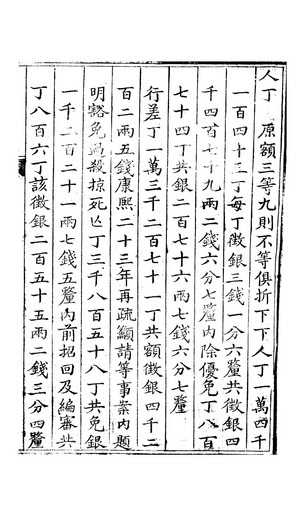 人丁 原額三等九則不等俱折下下人丁一萬四千
一百四十三丁每丁徵銀三錢一分六釐共徵銀四
千四百七十九兩二錢六分七釐內除優免丁八百
七十四丁共銀二百七十六兩七錢六分七釐
行差丁一萬三千二百七十一丁共額徵銀四千二
百二兩五錢康熙二十三年再疏籲請等事案內題
明豁免殺掠死亡丁三千八百五十八丁共免銀
一千二百二十一兩七錢五釐內前招回及編審共
丁八百六丁該徵銀二百五十五兩二錢三分四釐